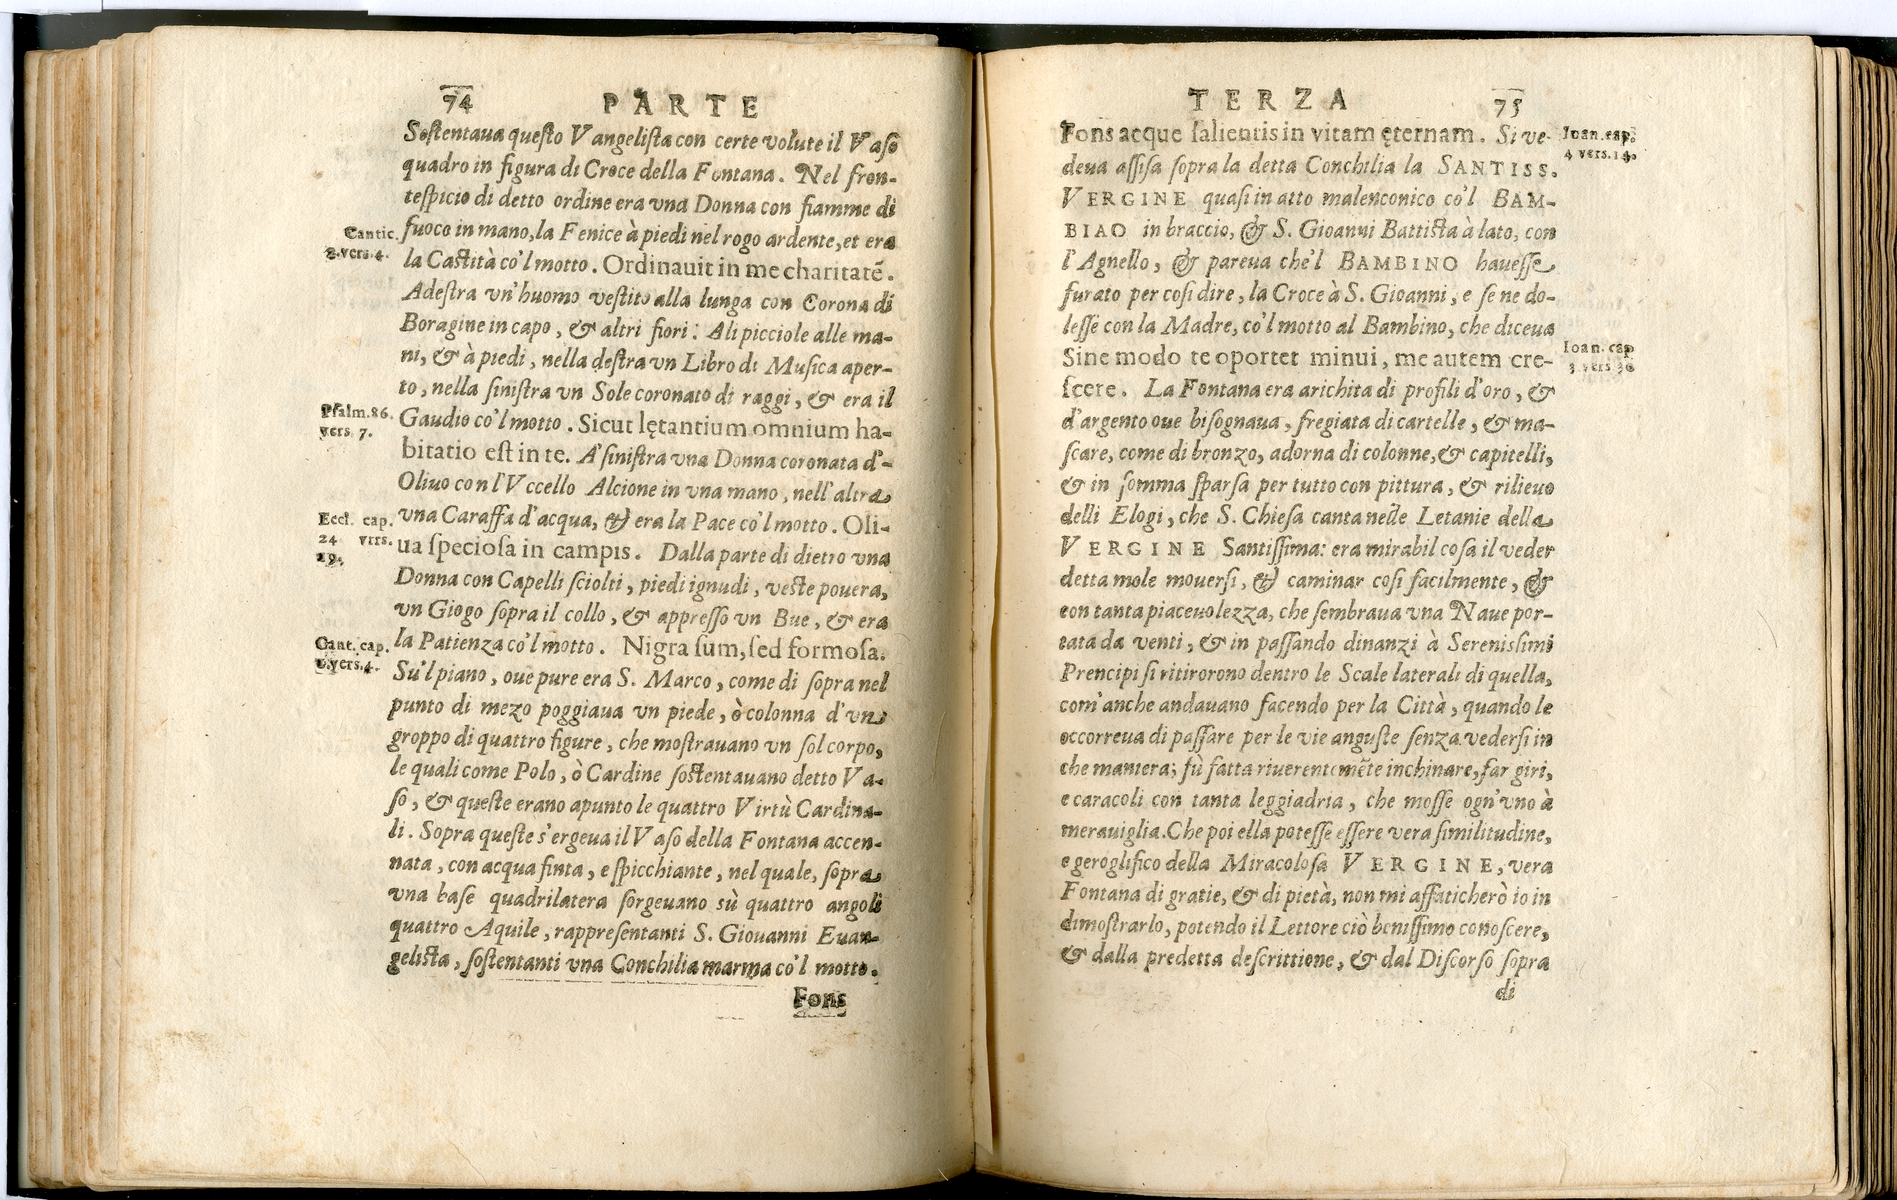 74 PARTE
Sostentaua questo Vangelista con certe volute il Vaso
quadro in figura di Croce della Fontana. Nel fron-
tespicio di detto ordine era vna Donna con fiamme di
fuoco in mano, la Fenice à piedi nel rogo ardente, et era
la Castità co'l motto. Ordinauit in me charitatẽ.
Adestra vn'huomo vestito alla lunga con Corona di
Boragine in capo, & altri fiori: Ali picciole alle ma-
ni, & à piedi, nella destra vn Libro di Musica aper-
to, nella sinistra vn Sole coronato di raggi, & era il
Gaudio co'l motto. Sicut lętantium omnium ha-
bitatio est in te. A' sinistra vna Donna coronata d'-
Oliuo con l'Vccello Alcione in vna mano, nell'altra
vna Caraffa d'acqua, & era la Pace co'l motto. Oli-
ua speciosa in campis. Dalla parte di dietro vna
Donna con Capelli sciolti, piedi ignudi, veste pouera,
vn Giogo sopra il collo, & appresso vn Bue, & era
la Patienza co'l motto. Nigra sum, sed formosa.
Su'l piano, oue pure era S. Marco, come di sopra nel
punto di mezo poggiaua vn piede, ò colonna d'vn
groppo di quattro figure, che mostrauano vn sol corpo,
le quali come Polo, ò Cardine sostentauano detto Va-
so, & queste erano apunto le quattro Virtù Cardina-
li. Sopra queste s'ergeua il Vaso della Fontana accen-
nata, con acqua finta, e spicchiante, nel quale, sopra
vna base quadrilatera sorgeuano sù quattro angoli
quattro Aquile, rappresentanti S. Giouanni Euan-
gelista, sostentanti vna Conchilia marma co'l motto.
Fons
Cantic.
2.vers.4.
Psalm.86.
vers. 7.
Eccl. cap.
24 vers.
19.
Cant. cap.
vers.4.
TERZA 75
Fons acque salientis in vitam ęternam. Si ve-
deua assisa sopra la detta Conchilia la SANTISS.
VERGINE quasi in atto malenconico co'l BAM-
BIAO in braccio, & S. Gioanni Battista à lato, con
l'Agnello, & pareua che'l BAMBINO hauesse
furato per cosi dire, la Croce à S. Gioanni, e se ne do-
lesse con la Madre, co'l motto al Bambino, che diceua
Sine modo te oportet minui, me autem cre-
scere. La Fontana era arichita di profili d'oro, &
d'argento oue bisognaua, fregiata di cartelle, & ma-
scare, come di bronzo, adorna di colonne, & capitelli,
& in somma sparsa per tutto con pittura, & rilieuo
delli Elogi, che S. Chiesa canta nelle Letanie della
VERGINE Santissima: era mirabil cosa il veder
detta mole mouersi, & caminar cosi facilmente, &
con tanta piaceuolezza, che sembraua vna Naue por-
tata da venti, & in passando dinanzi à Serenissimi
Prencipi si ritirorono dentro le Scale laterali di quella,
com'anche andauano facendo per la Città, quando le
occorreua di passare per le vie anguste senza vedersi in
che maniera; fù fatta riuerentemẽte inchinare, far giri,
e caracoli con tanta leggiadria, che mosse ogn'vno à
merauiglia. Che poi ella potesse essere vera similitudine,
e geroglifico della Miracolosa VERGINE, vera
Fontana di gratie, & di pietà, non mi affaticherò io in
dimostrarlo, potendo il Lettore ciò benissimo conoscere,
& dalla predetta descrittione, & dal Discorso sopra
di
Ioan. cap.
4 vers.14.
Ioan. cap
3 vers 30